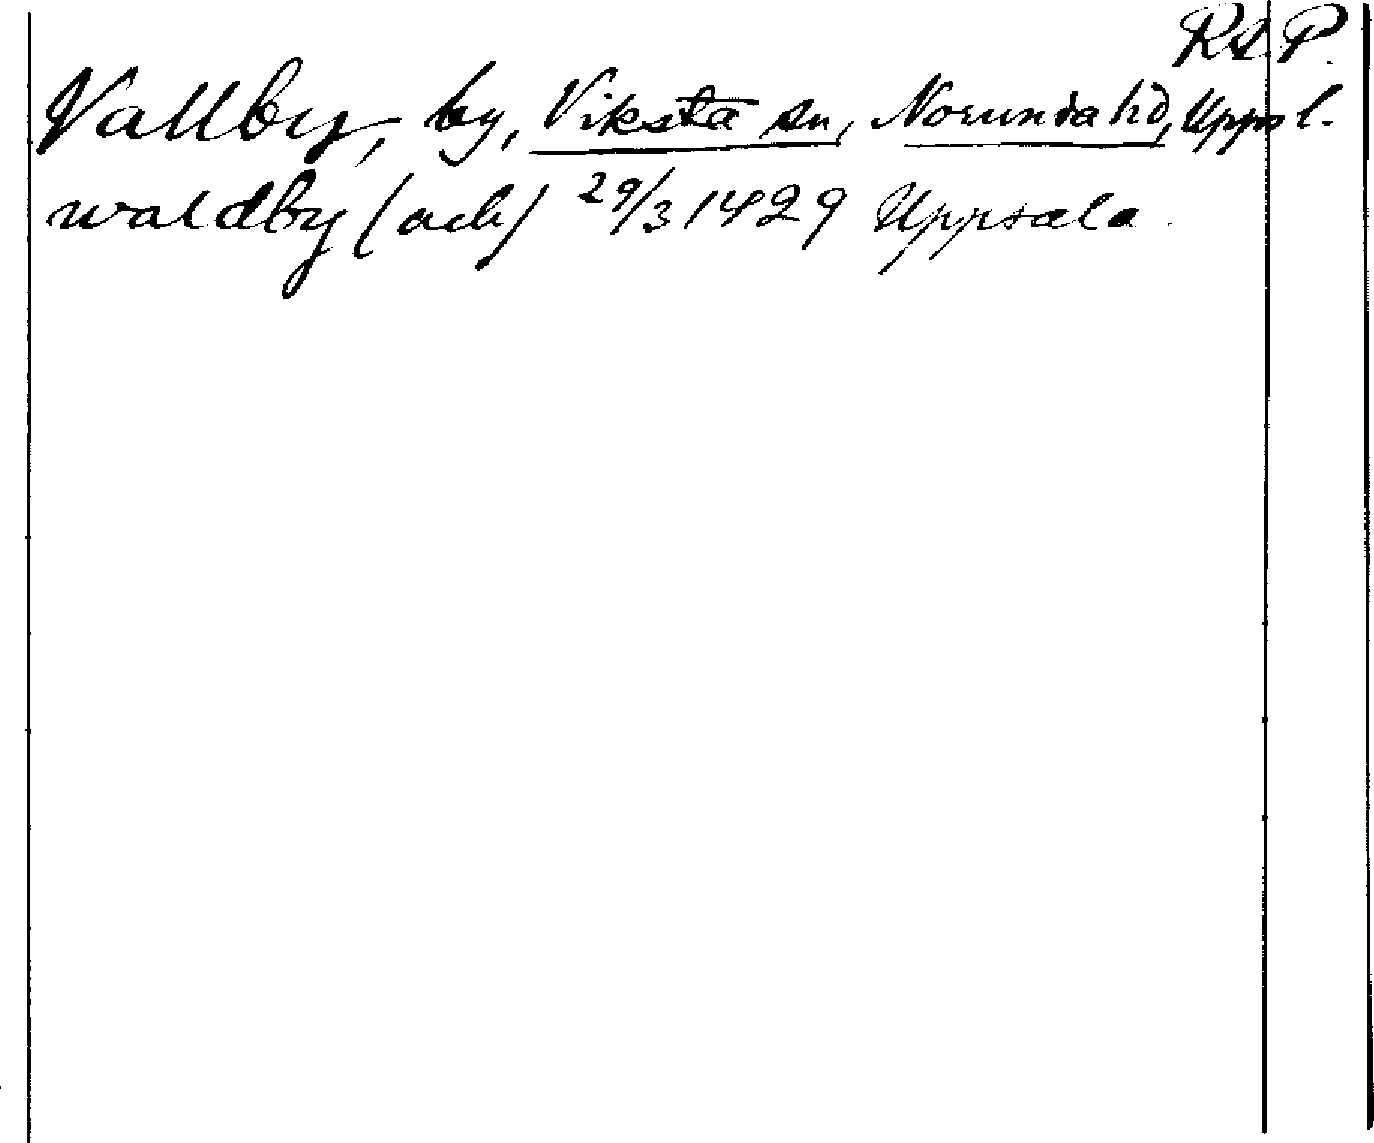 R.S.P.
Vallby, by, Viksta sn, Norunda hd, Uppsl.
waldby (ack) 29/3 1429 Uppsala.